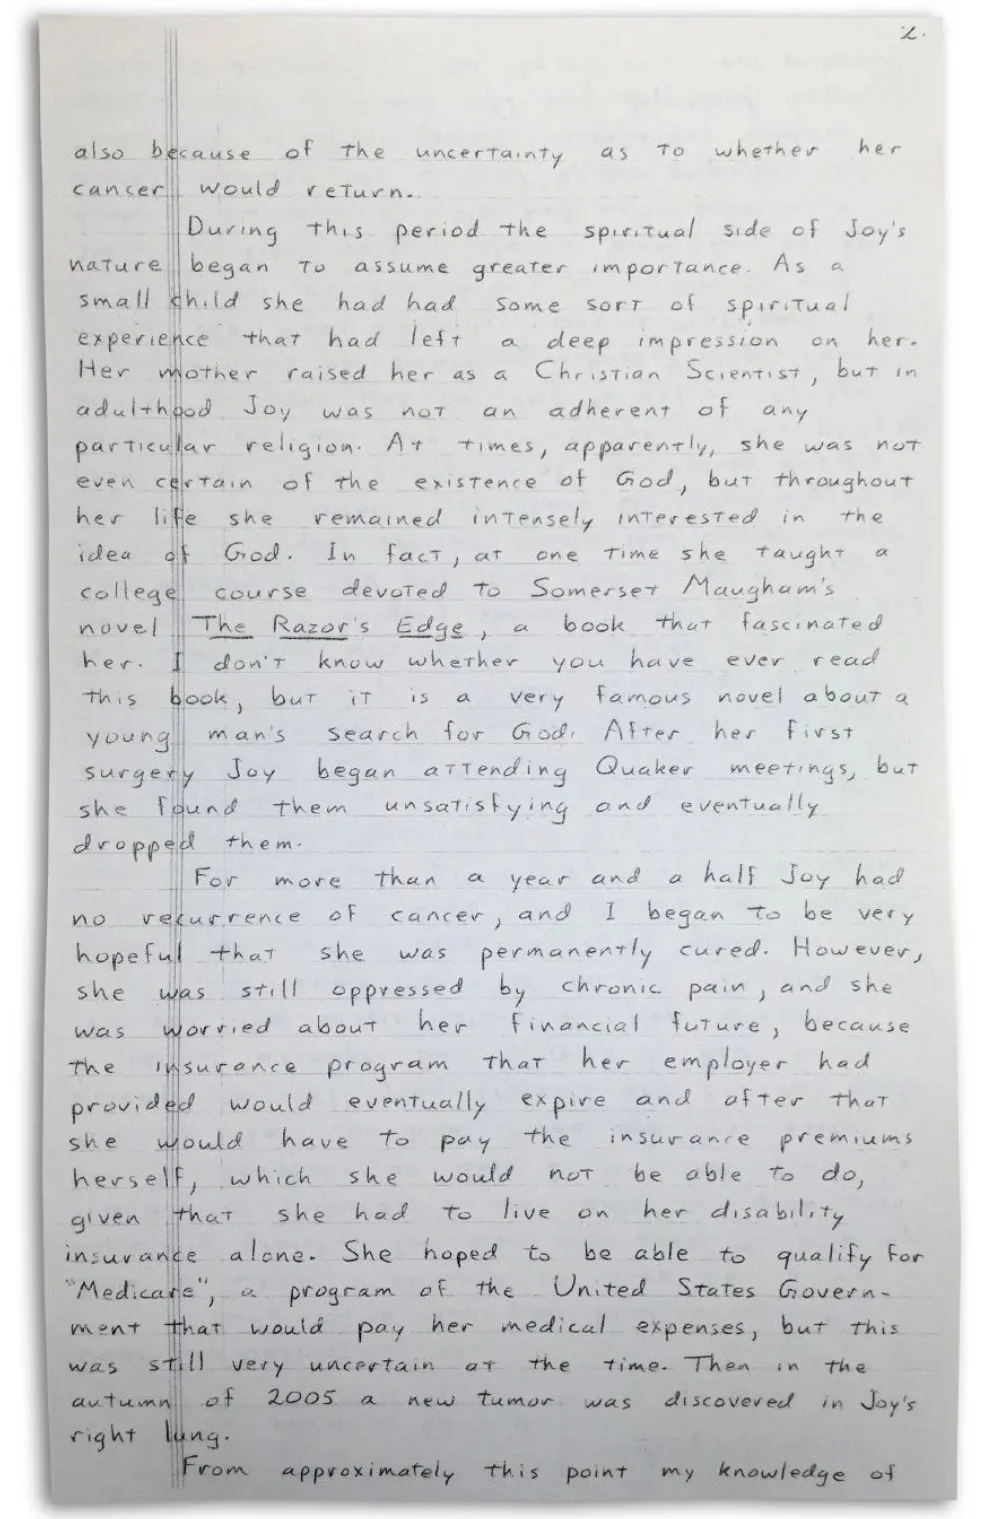 2.
also because of the uncertainty as to whether her
cancer would return.
During this period the spiritual side of Joy's
nature began to assume greater importance. As a
small child she had had some sort of spiritual
experience that had left a deep impression on her.
Her mother raised her as a Christian Scientist, but in
adulthood Joy was not an adherent of any
particular religion. At times, apparently, she was not
even certain of the existence of God, but throughout
her life she remained intensely interested in the
idea of God. In fact, at one time she taught a
college course devoted to Somerset Maugham's
novel The Razor's Edge, a book that fascinated
her. I don't know whether you have ever read
this book, but it is a very famous novel about a
young man's search for God. After her first
surgery Joy began attending Quaker meetings, but
she found them unsatisfying and eventually
dropped them.
For more than a year and a half Joy had
no recurrence of cancer, and I began to be very
hopeful that she was permanently cured. However,
she was still oppressed by chronic pain, and she
was worried about her financial future, because
the insurance program that her employer had
provided would eventually expire and after that
she would have to pay the insurance premiums
herself, which she would not be able to do,
given that she had to live on her disability
insurance alone. She hoped to be able to qualify for
"Medicare", a program of the United States Govern-
ment that would pay her medical expenses, but this
was still very uncertain at the time. Then in the
autumn of 2005 a new tumor was discovered in Joy's
right lung.
From approximately this point my knowledge of